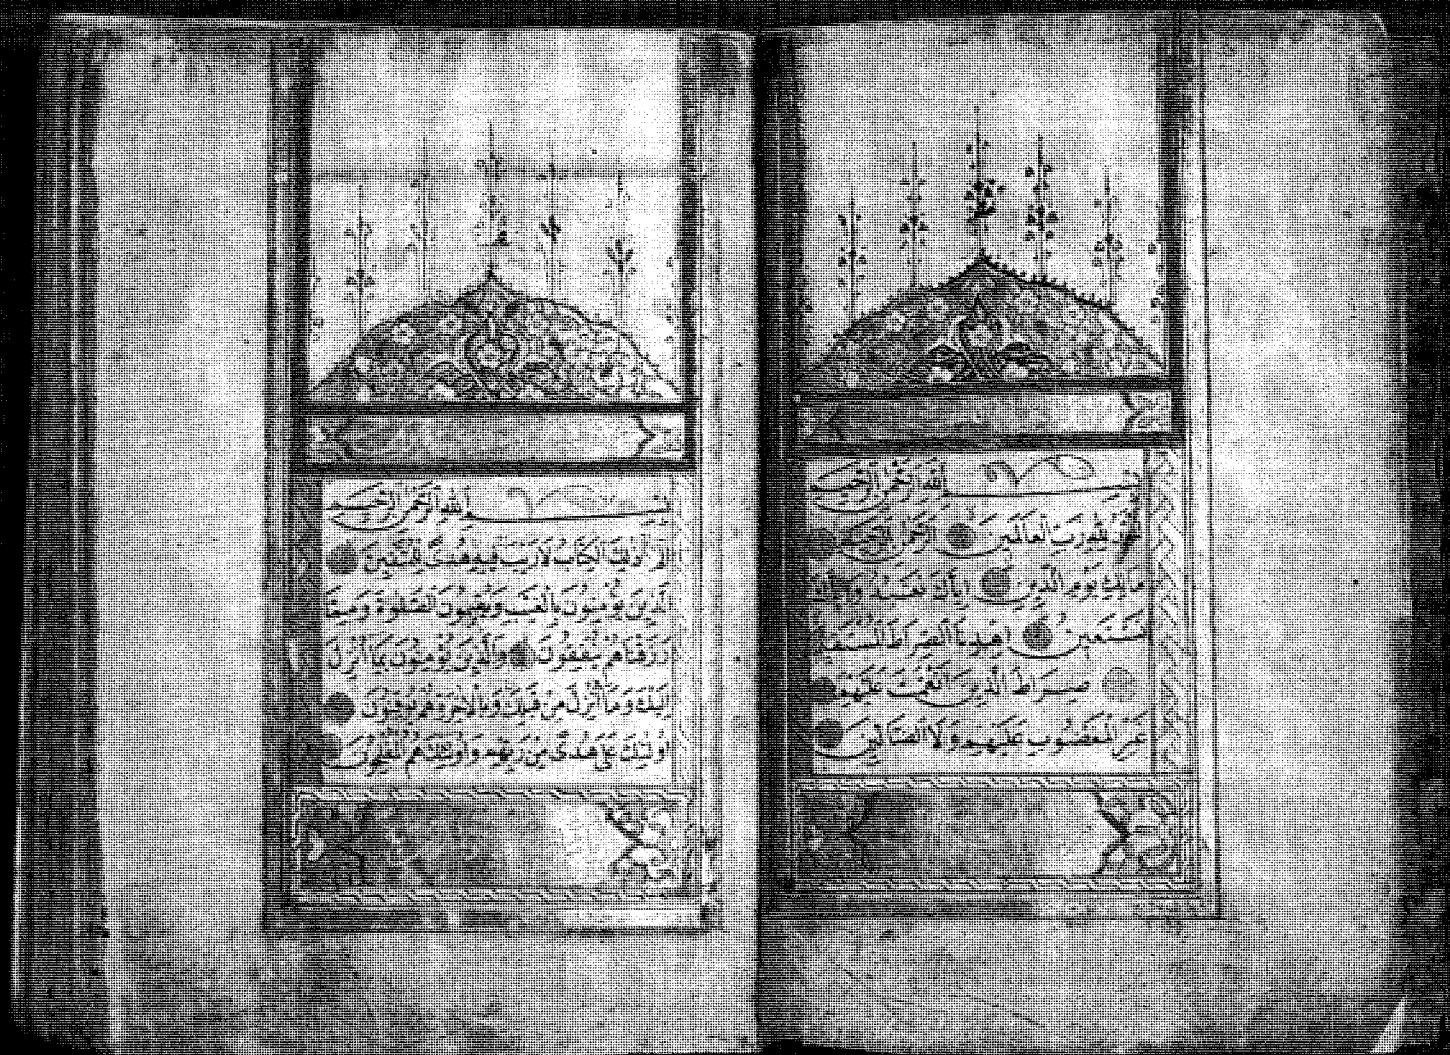 بِسْمِ اللهِ الرَّحْمٰنِ الرَّحِيمِ
اَلْحَمْدُ لِلّٰهِ رَبِّ الْعَالَمِينَ الرَّحْمٰنِ الرَّحِيمِ
مَالِكِ يَوْمِ الدِّينِ اِيَّاكَ نَعْبُدُ وَاِيَّاكَ
نَسْتَعِينُ اِهْدِنَا الصِّرَاطَ الْمُسْتَقِيمَ
صِرَاطَ الَّذِينَ اَنْعَمْتَ عَلَيْهِمْ
غَيْرِ الْمَغْضُوبِ عَلَيْهِمْ وَلَا الضَّالِّينَ
بِسْمِ اللهِ الرَّحْمٰنِ الرَّحِيمِ
الٓمٓ ذٰلِكَ الْكِتَابُ لَارَيْبَ فِيهِ هُدًى لِلْمُتَّقِينَ
اَلَّذِينَ يُؤْمِنُونَ بِالْغَيْبِ وَيُقِيمُونَ الصَّلٰوةَ وَمِمَّا
رَزَقْنَاهُمْ يُنْفِقُونَ وَالَّذِينَ يُؤْمِنُونَ بِمَا اُنْزِلَ
اِلَيْكَ وَمَا اُنْزِلَ مِنْ قَبْلِكَ وَبِالْاٰخِرَةِ هُمْ يُوقِنُونَ
اُولٰئِكَ عَلٰى هُدًى مِنْ رَبِّهِمْ وَاُولٰئِكَ هُمُ الْمُفْلِحُونَ